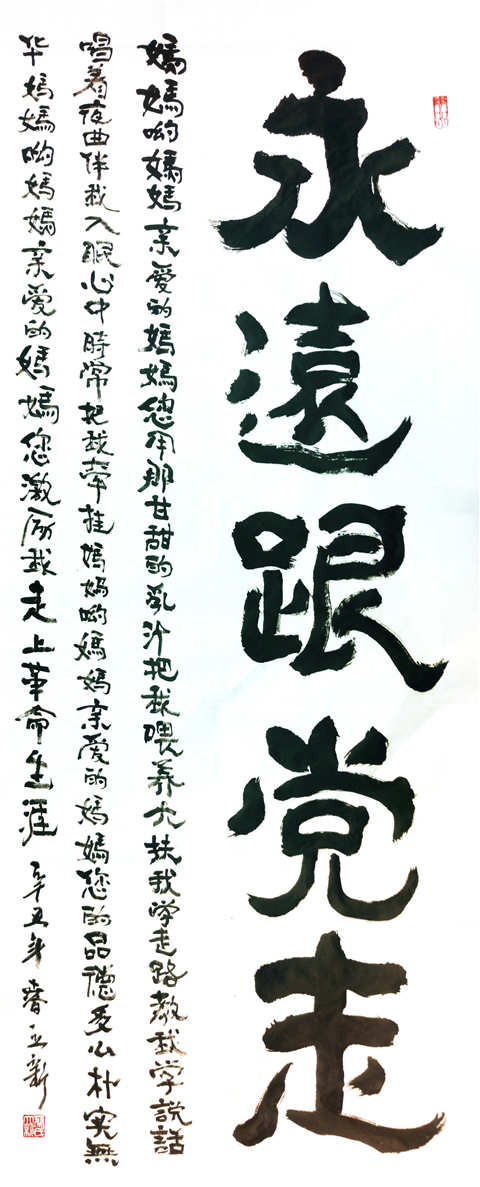 永遠跟党走
媽媽喲媽媽亲愛的媽媽您用那甘甜的乳汁把我喂养大扶我学走路教我学說話
唱着夜曲伴我入眠心中時常把我牵挂媽媽喲媽媽亲爱的媽媽您的品德多么朴实無
华媽媽喲媽媽亲爱的媽媽您激励我走上革命生涯 辛丑年